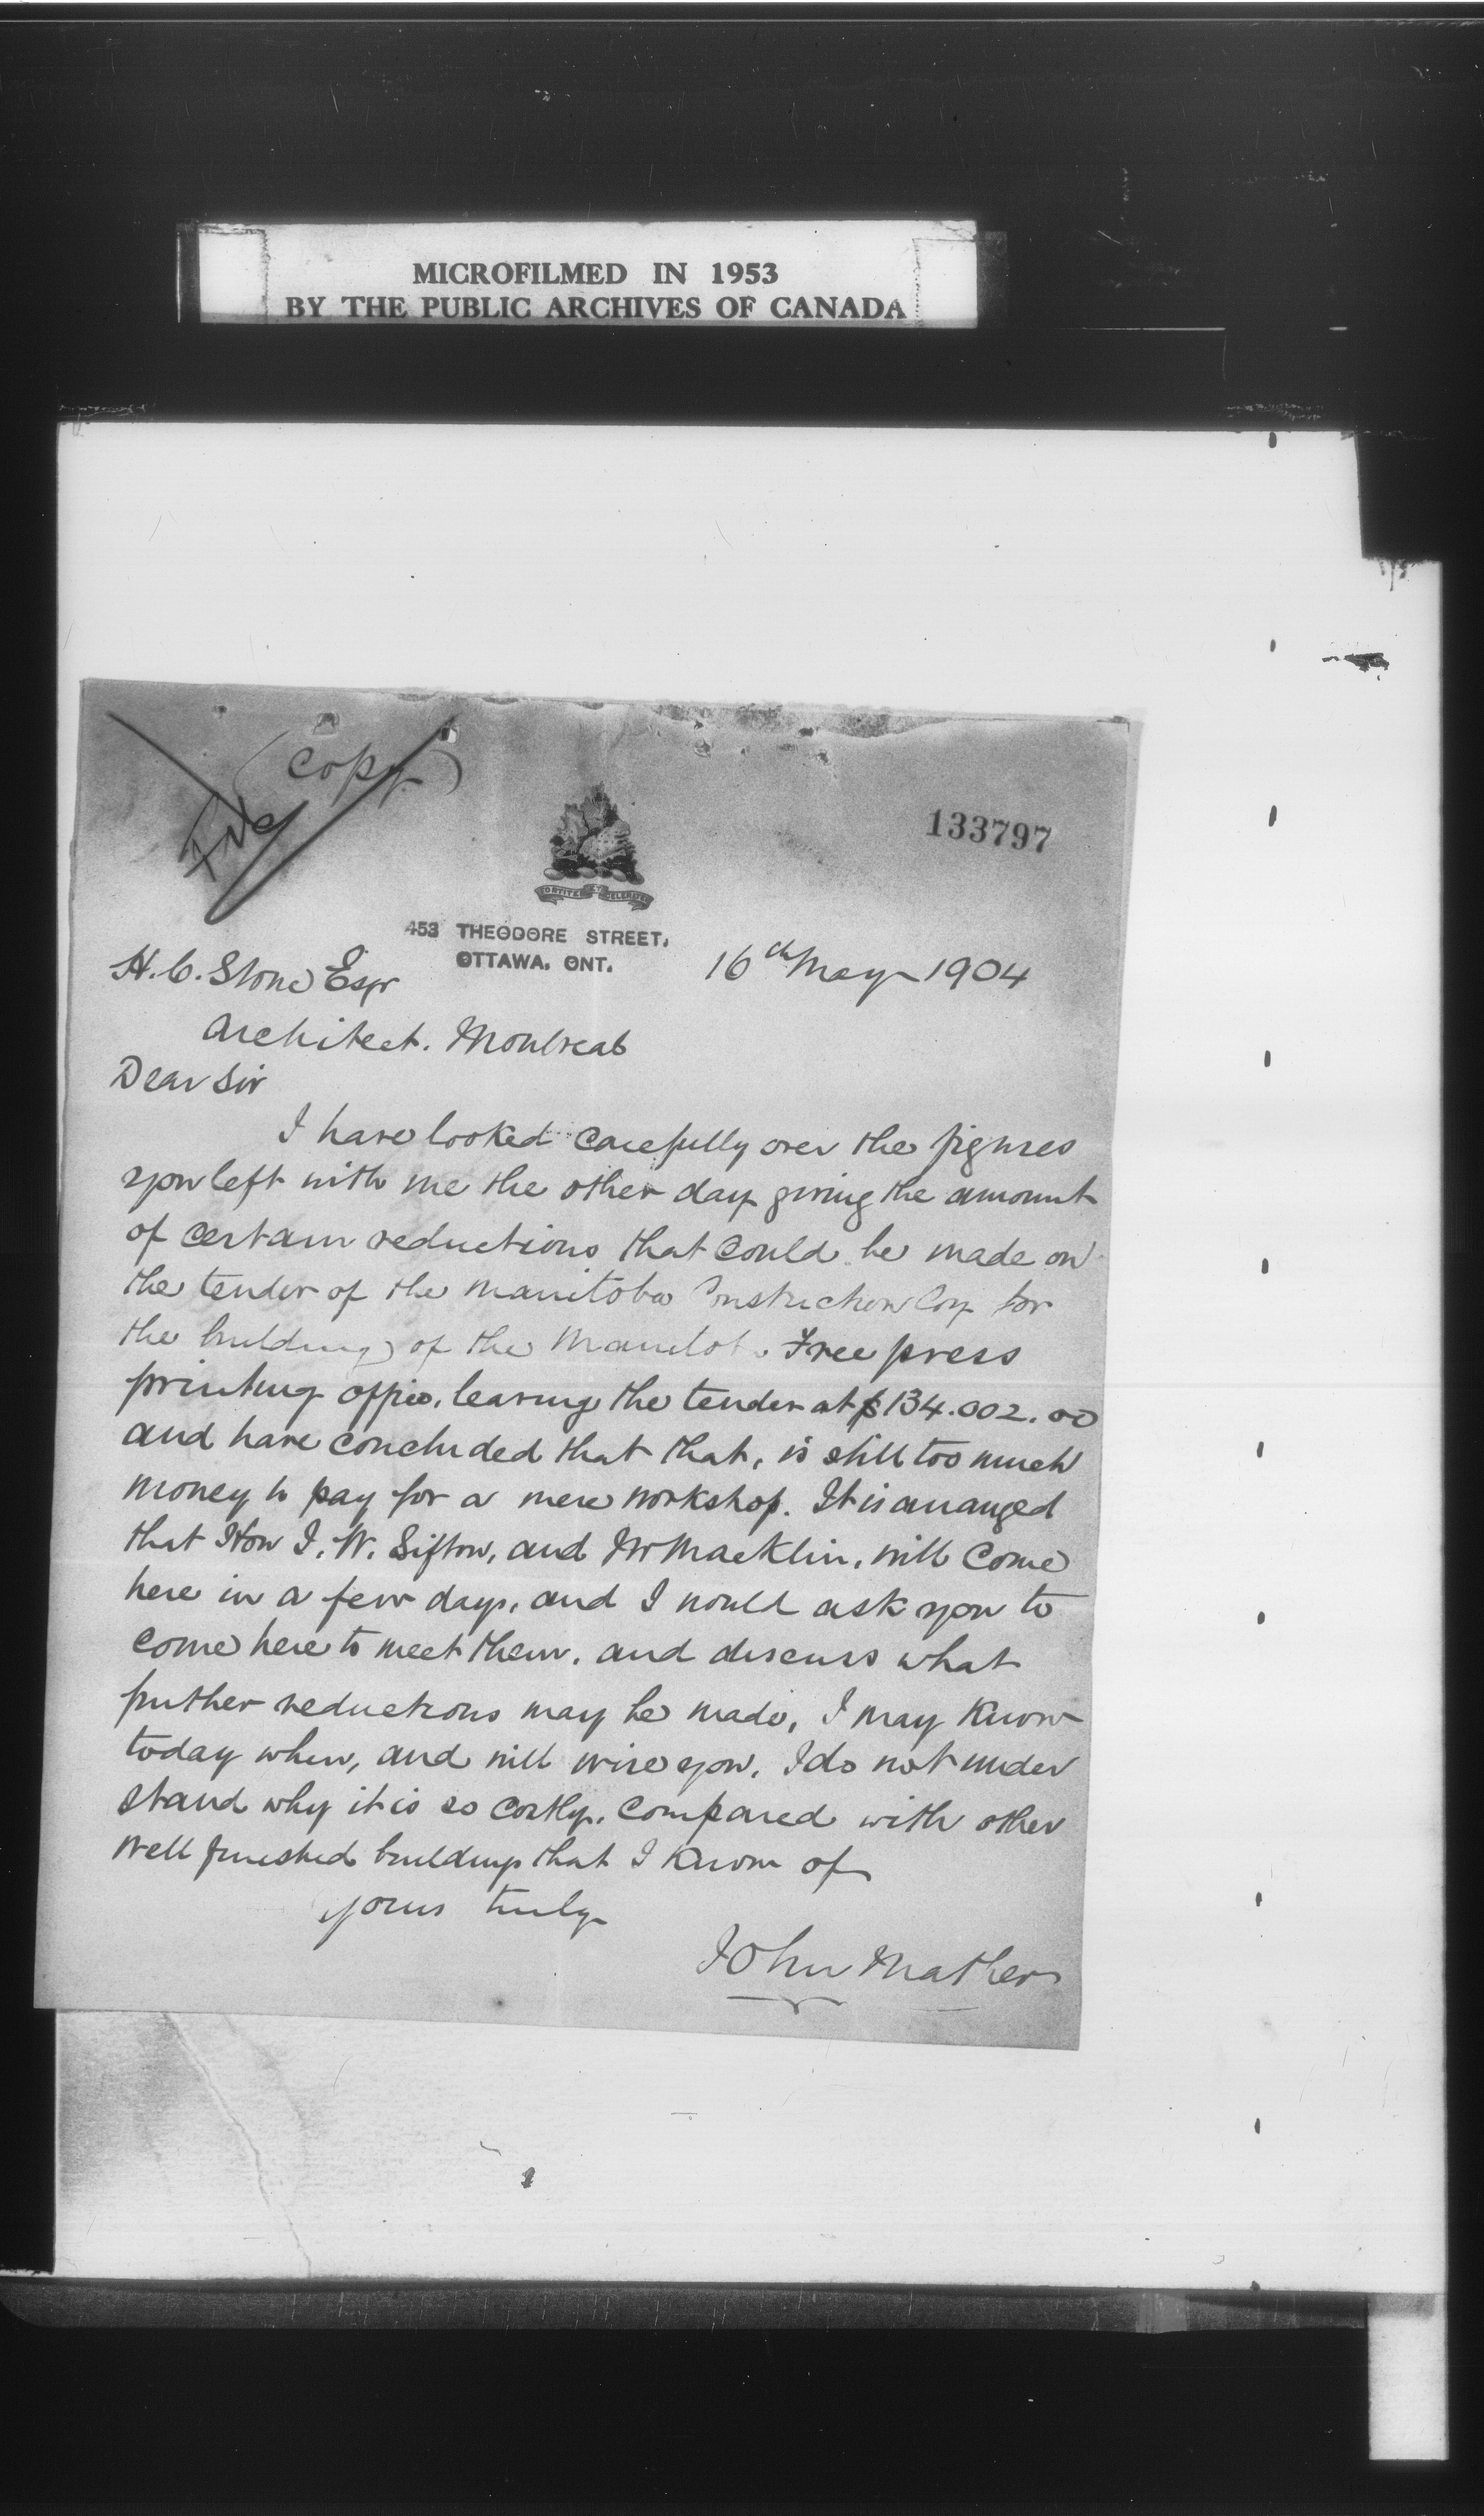 MICROFILMED IN 1953
BY THE PUBLIC ARCHIVES OF CANADA
(Copy)
File
133797
FORTITER ET CELERITER
453 THEODORE STREET,
OTTAWA, ONT.
16th May 1904
H. C. Stone Esqr
Architect. Montreal
Dear Sir
I have looked carefully over the figures
you left with me the other day giving the amount
of certain reductions that could be made on
the tender of the Manitoba Construction Coy for
the building of the Manitoba Free press
printing office, leaving the tender at $134.002.00
and have concluded that that, is still too much
money to pay for a mere workshop. It is arranged
that Hon J. W. Sifton, and Mr Macklin, will come
here in a few days, and I would ask you to
come here to meet them, and discuss what
further reductions may be made, I may know
today when, and will wire you. I do not under
stand why it is so costly, compared with other
well finished buildings that I know of
yours truly
John Mather